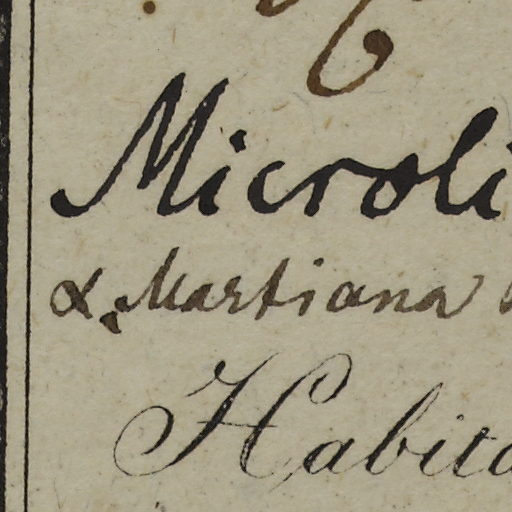 Microli
α. Martiana
Habita